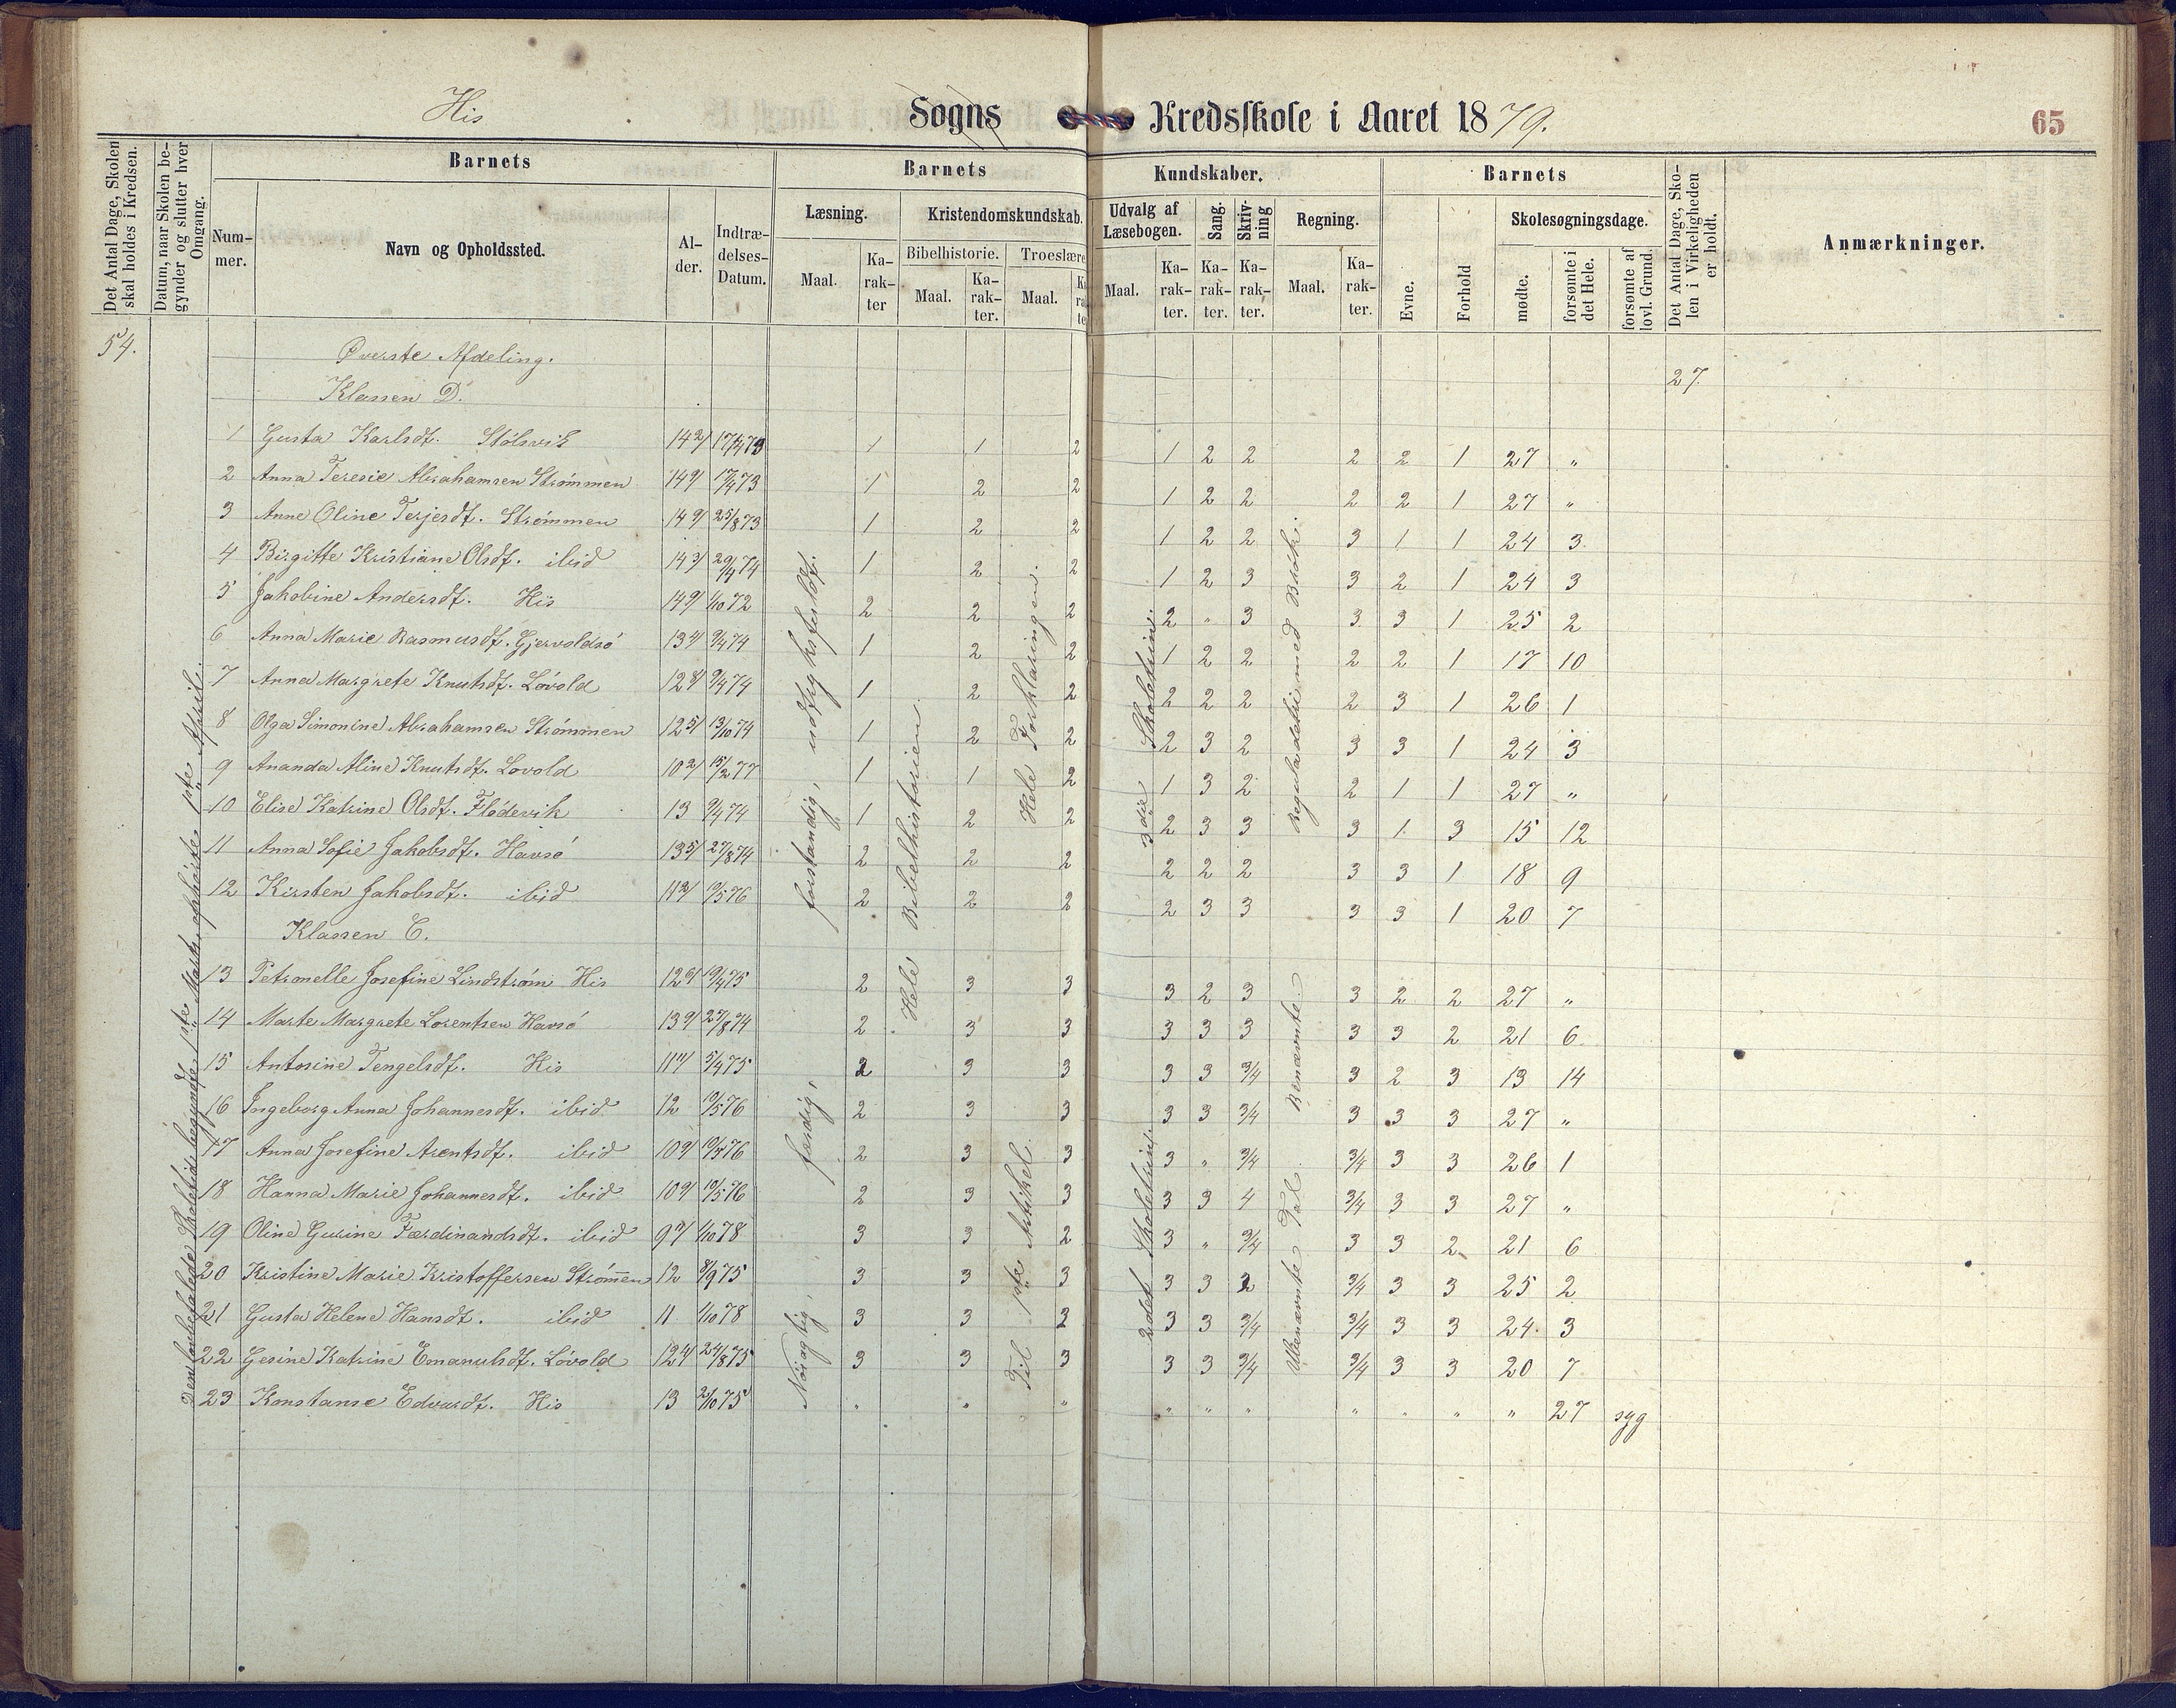 His Sogns Kredsskole i Aaret 1879.
65
Det Antal Dage, Skolen skal holdes i Kredsen.
Datum, naar Skolen begynder og slutter hver Omgang.
Barnets
Nummer.
Navn og Opholdssted.
Alder.
Indtrædelses-Datum.
Barnets Kundskaber.
Læsning.
Maal.
Karakter
Kristendomskundskab.
Bibelhistorie.
Maal.
Karakter.
Troeslære
Maal.
Udvalg af Læsebogen.
Maal.
Karakter.
Sang.
Karakter.
Skrivning
Karakter.
Regning.
Maal.
Karakter.
Barnets
Evne.
Forhold
Skolesøgningsdage.
mødte.
forsømte i det Hele.
forsømte af lovl. Grund.
Det Antal Dage, Skolen i Virkeligheden er holdt.
Anmærkninger.
54.
27.
Øverste Afdeling.
Klassen D.
1 Gusta Karlsdt. Stölsvik 1 1 2 1 2 2 2 2 1 27 "
2 Anna Teresie Abrahamsen Strømmen 17/4 73 1 2 2 1 2 2 2 2 1 27 "
3 Anne Oline Terjesdt. Strømmen 25/8 73 1 2 2 1 2 2 3 1 1 24 3
4 Birgitte Kristiane Olsdt. ibid 29/4 74 1 2 2 1 2 3 3 2 1 24 3
5 Jakobine Andersdt. His 1/10 72 2 2 2 2 " 3 3 3 1 25 2
6 Anna Marie Rasmusdt. Gjervoldsö 9/4 74 1 2 2 1 2 2 2 2 1 17 10
7 Anna Margrete Knutsdt. Lövold 9/4 74 1 2 2 2 2 2 2 3 1 26 1
8 Olga Simonine Abrahamsen Strømmen 13/10 74 1 2 2 2 3 2 3 3 1 24 3
9 Ananda Aline Knutsdt. Lovold 15/2 77 1 1 2 1 3 2 2 1 1 27 "
10 Elise Katrine Olsdt. Flödevik 13 9/4 74 1 2 2 2 3 3 3 1 3 15 12
11 Anna Sofie Jakobsdt. Havsö 27/8 74 2 2 2 2 2 2 3 3 1 18 9
12 Kirsten Jakobsdt. ibid 19/5 76 2 2 2 2 3 3 3 3 1 20 7
Klassen C.
13 Petronelle Josefine Lindstrøm His 19/4 75 2 3 3 3 2 3 3 2 2 27 "
14 Marte Margrete Lorentsen Havsö 27/8 74 2 3 3 3 3 3 3 3 2 21 6
15 Antorine Tengelsdt. His 5/4 75 2 3 3 3 3 3/4 3 2 3 13 14
16 Ingeborg Anna Johannesdt. ibid. 12 19/5 76 2 3 3 3 3 3/4 3 3 3 27 "
17 Anna Josefine Arentsdt. ibid 19/5 76 2 3 3 3 " 3/4 3/4 3 3 26 1
18 Hanna Marie Johannesdt. ibid 19/5 76 2 3 3 3 3 4 3/4 3 3 27 "
19 Oline Gurine Færdinandsdt. ibid 1/10 78 3 3 2 3 " 3/4 3 3 2 21 6
20 Kristine Marie Kristoffersen Strømmen 12 8/9 75 3 3 3 3 3 3/4 3 3 25 2
21 Gusta Helene Hansdt. ibid 11 1/10 78 3 3 3 3 3/4 3/4 3 3 24 3
22 Gesine Katrine Emanuelsdt. Lövold 24/8 75 3 3 3 3 3 3/4 3/4 3 3 20 7
23 Konstanse Edvardt. His 13 2/10 75 " " " " " " " " " " 27 syg
Den anbefalede Skoletid begyndte 1ste Marts, ophørte 1ste April.
Nöiagtig, færdig, forstandig, udtryksfuldt.
Hele Bibelhistorien.
Hele Forklaringen.
Til 1ste Artikel.
3die Skoletrin.
2det Skoletrin.
Regulædetri med Brök.
Ubenævnte Tal. Benævnte.